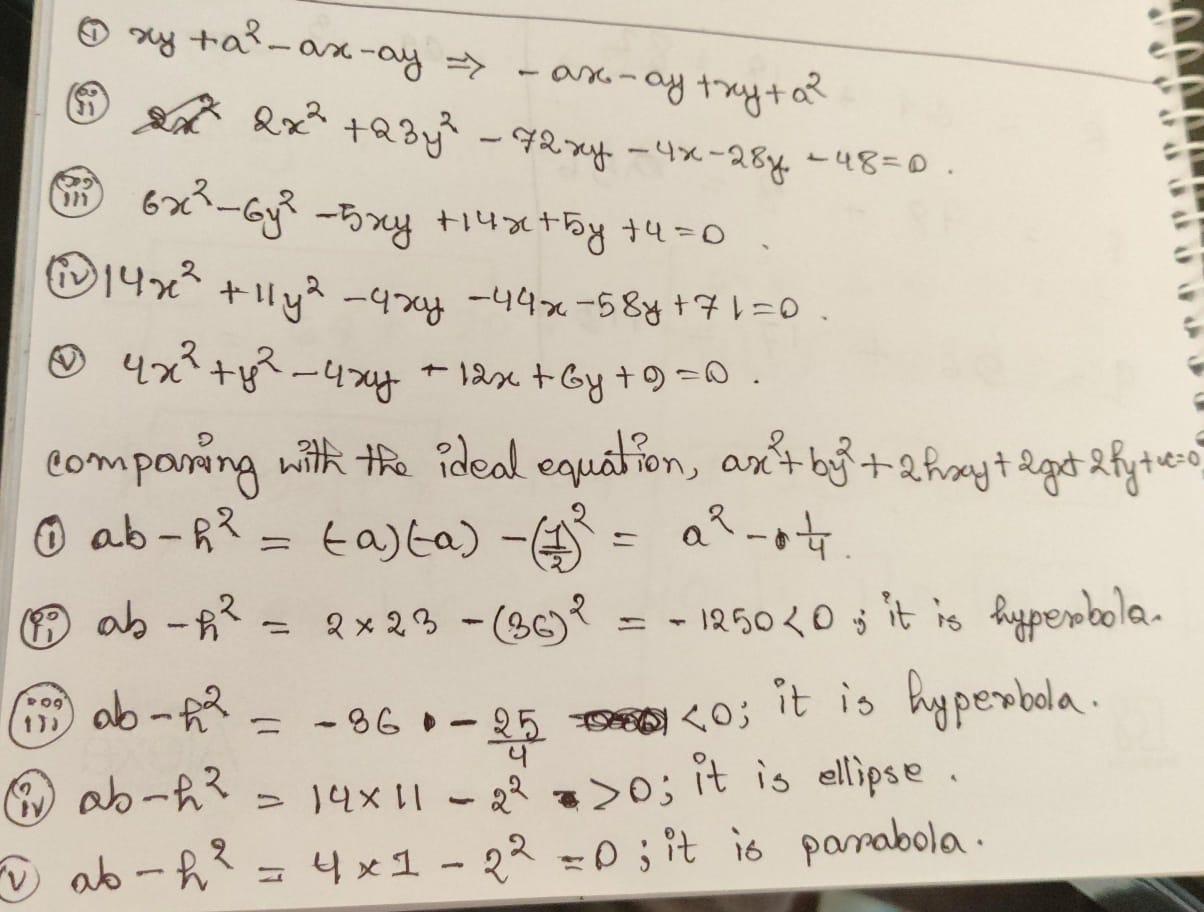 (i) xy + a² - ax - ay ⇒ - ax - ay + xy + a²
(ii) 2x² + 23y² - 72xy - 4x - 28y - 48 = 0.
(iii) 6x² - 6y² - 5xy + 14x + 5y + 4 = 0.
(iv) 14x² + 11y² - 4xy - 44x - 58y + 71 = 0.
(v) 4x² + y² - 4xy - 12x + 6y + 9 = 0.
comparing with the ideal equation, ax² + by² + 2hxy + 2gx + 2fy + c = 0
(i) ab - h² = (-a)(-a) - (1/2)² = a² - 1/4.
(ii) ab - h² = 2 × 23 - (36)² = - 1250 < 0 ; it is hyperbola.
(iii) ab - h² = - 36 - 25/4 < 0; it is hyperbola.
(iv) ab - h² = 14 × 11 - 2² > 0; it is ellipse.
(v) ab - h² = 4 × 1 - 2² = 0 ; it is parabola.